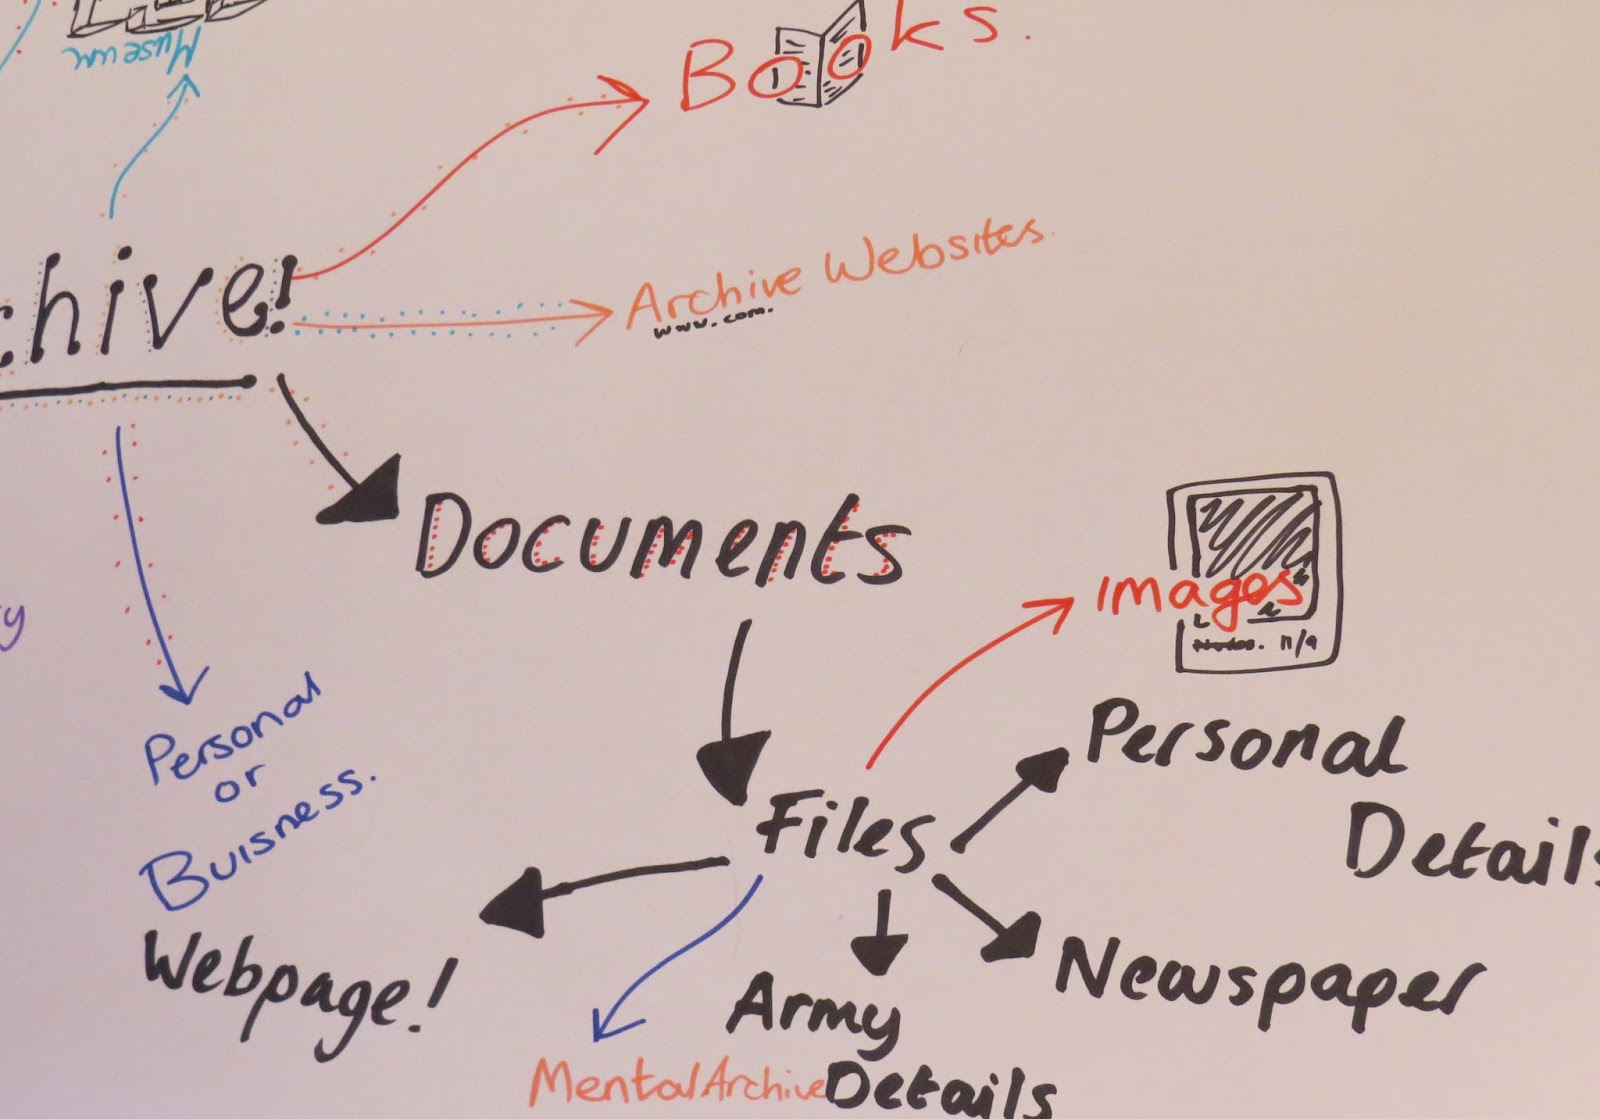 Museum
Books.
chive!
Archive Websites.
www.com.
Documents
images
n/a
y
Personal
or
Buisness.
Files
Personal
Details
Webpage!
Newspaper
Army
Details
Mental Archive